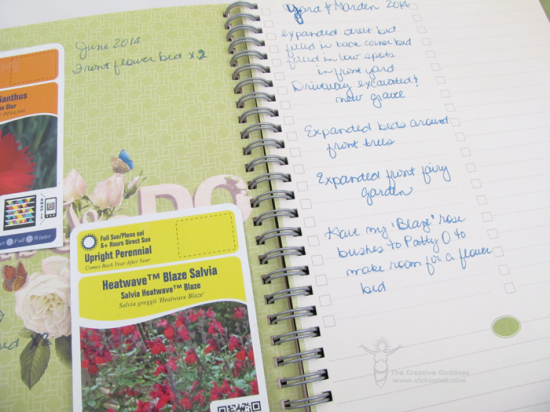 June 2014
Front flower bed x2
ianthus
Star
Fall Winter
DO
Full Sun/Pleno sol
6+ Hours Direct Sun
Upright Perennial
Comes Back Year After Year
Heatwave™ Blaze Salvia
Salvia Heatwave™ Blaze
Salvia greggii 'Heatwave Blaze'
Yard & Garden 2014
expanded street bed
filled in back corner bed
filled in low spots
in front yard
Driveway excavated &
new gravel
Expanded beds around
front trees
Expanded front fairy
garden
Gave my 'Blaze' rose
bushes to Patty O to
make room for a flower
bed
The Creative Goddess